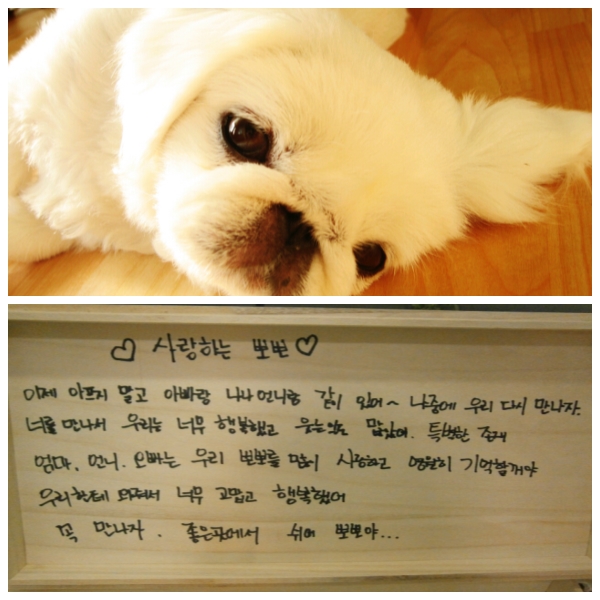 ♡ 사랑하는 뽀뽀 ♡
이제 아프지 말고 아빠랑 나나언니랑 같이 있어~ 나중에 우리 다시 만나자.
너를 만나서 우리는 너무 행복했고 웃는일도 많았어. 특별한 존재
엄마, 언니, 오빠는 우리 뽀뽀를 많이 사랑하고 영원히 기억할꺼야
우리한테 와줘서 너무 고맙고 행복했어
꼭 만나자. 좋은곳에서 쉬어 뽀뽀야...